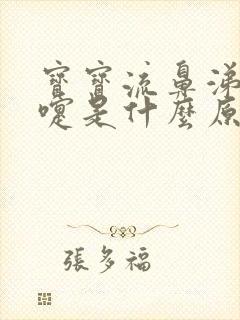 寶寶流鼻涕
嚏是什麼原
張多福